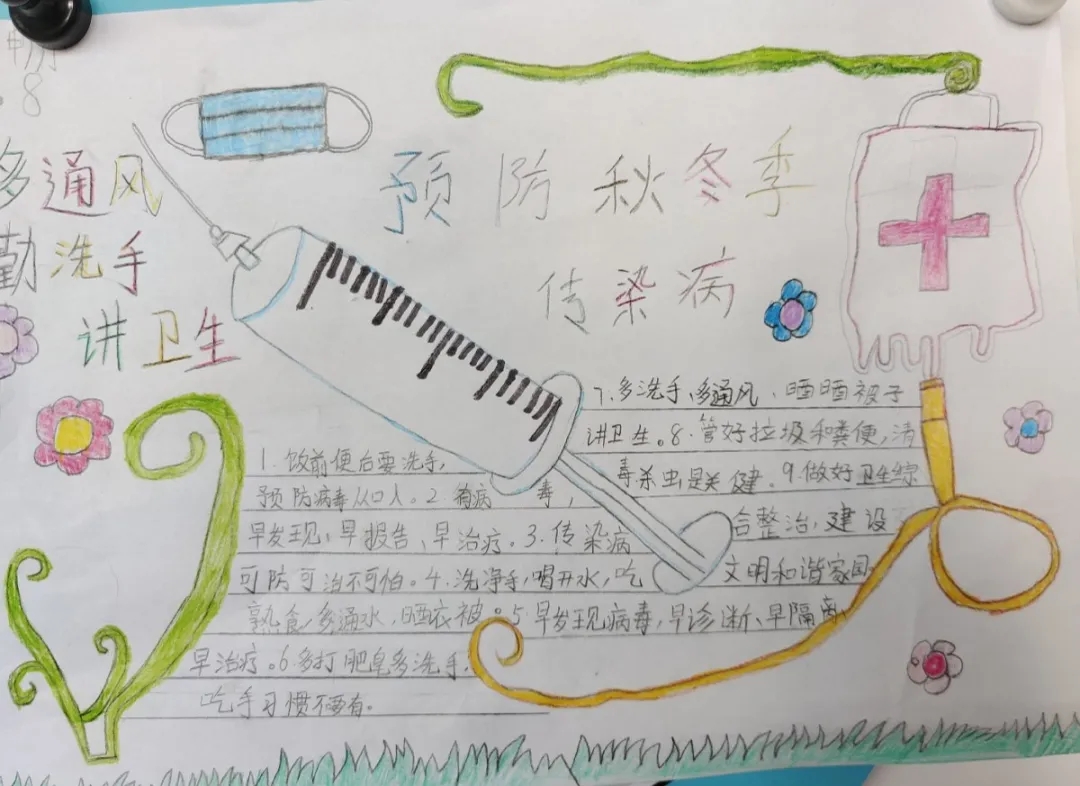 8
多通风
勤洗手
讲卫生
预防秋冬季
传染病
1.饭前便后要洗手,
预防病毒从口入。2.有病 毒,
早发现、早报告、早治疗。3.传染病
可防可治不可怕。4.洗净手,喝开水,吃
熟食多通水,晒衣被。5.早发现病毒,早诊断、早隔离
早治疗。6.多打肥皂多洗手,
吃手习惯不要有。
7.多洗手、多通风、晒晒被子
讲卫生。8.管好垃圾和粪便,清
毒杀虫是关健。9.做好卫生综
合整治,建设
文明和谐家国